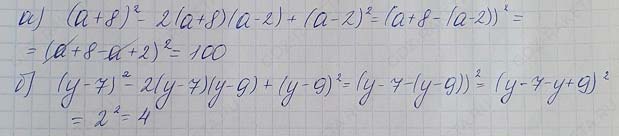 а) (a+8)² - 2(a+8)(a-2) + (a-2)² = (a+8-(a-2))² =
= (a+8-a+2)² = 100
б) (y-7)² - 2(y-7)(y-9) + (y-9)² = (y-7-(y-9))² = (y-7-y+9)²
= 2² = 4